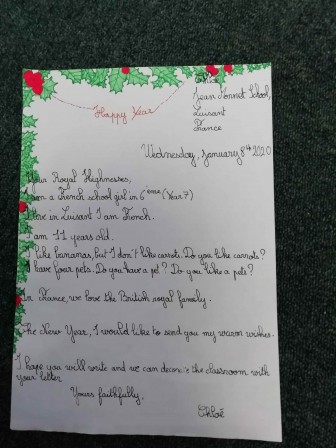 Chloé
Jean Monnet School,
Luisant
France
Happy Year
Wednesday, January 8th 2020
Your Royal Highnesses,
I am a French school girl in 6ème (Year 7)
I live in Luisant I am French.
I am 11 years old.
I like bananas, but I don't like carrots. Do you like carrots?
I have four pets. Do you have a pet? Do you like a pets?
In France, we love the British royal family.
The New Year, I would like to send you my warm wishes.
I hope you will write and we can decorate the classroom with
your letter
Yours faithfully.
Chloé